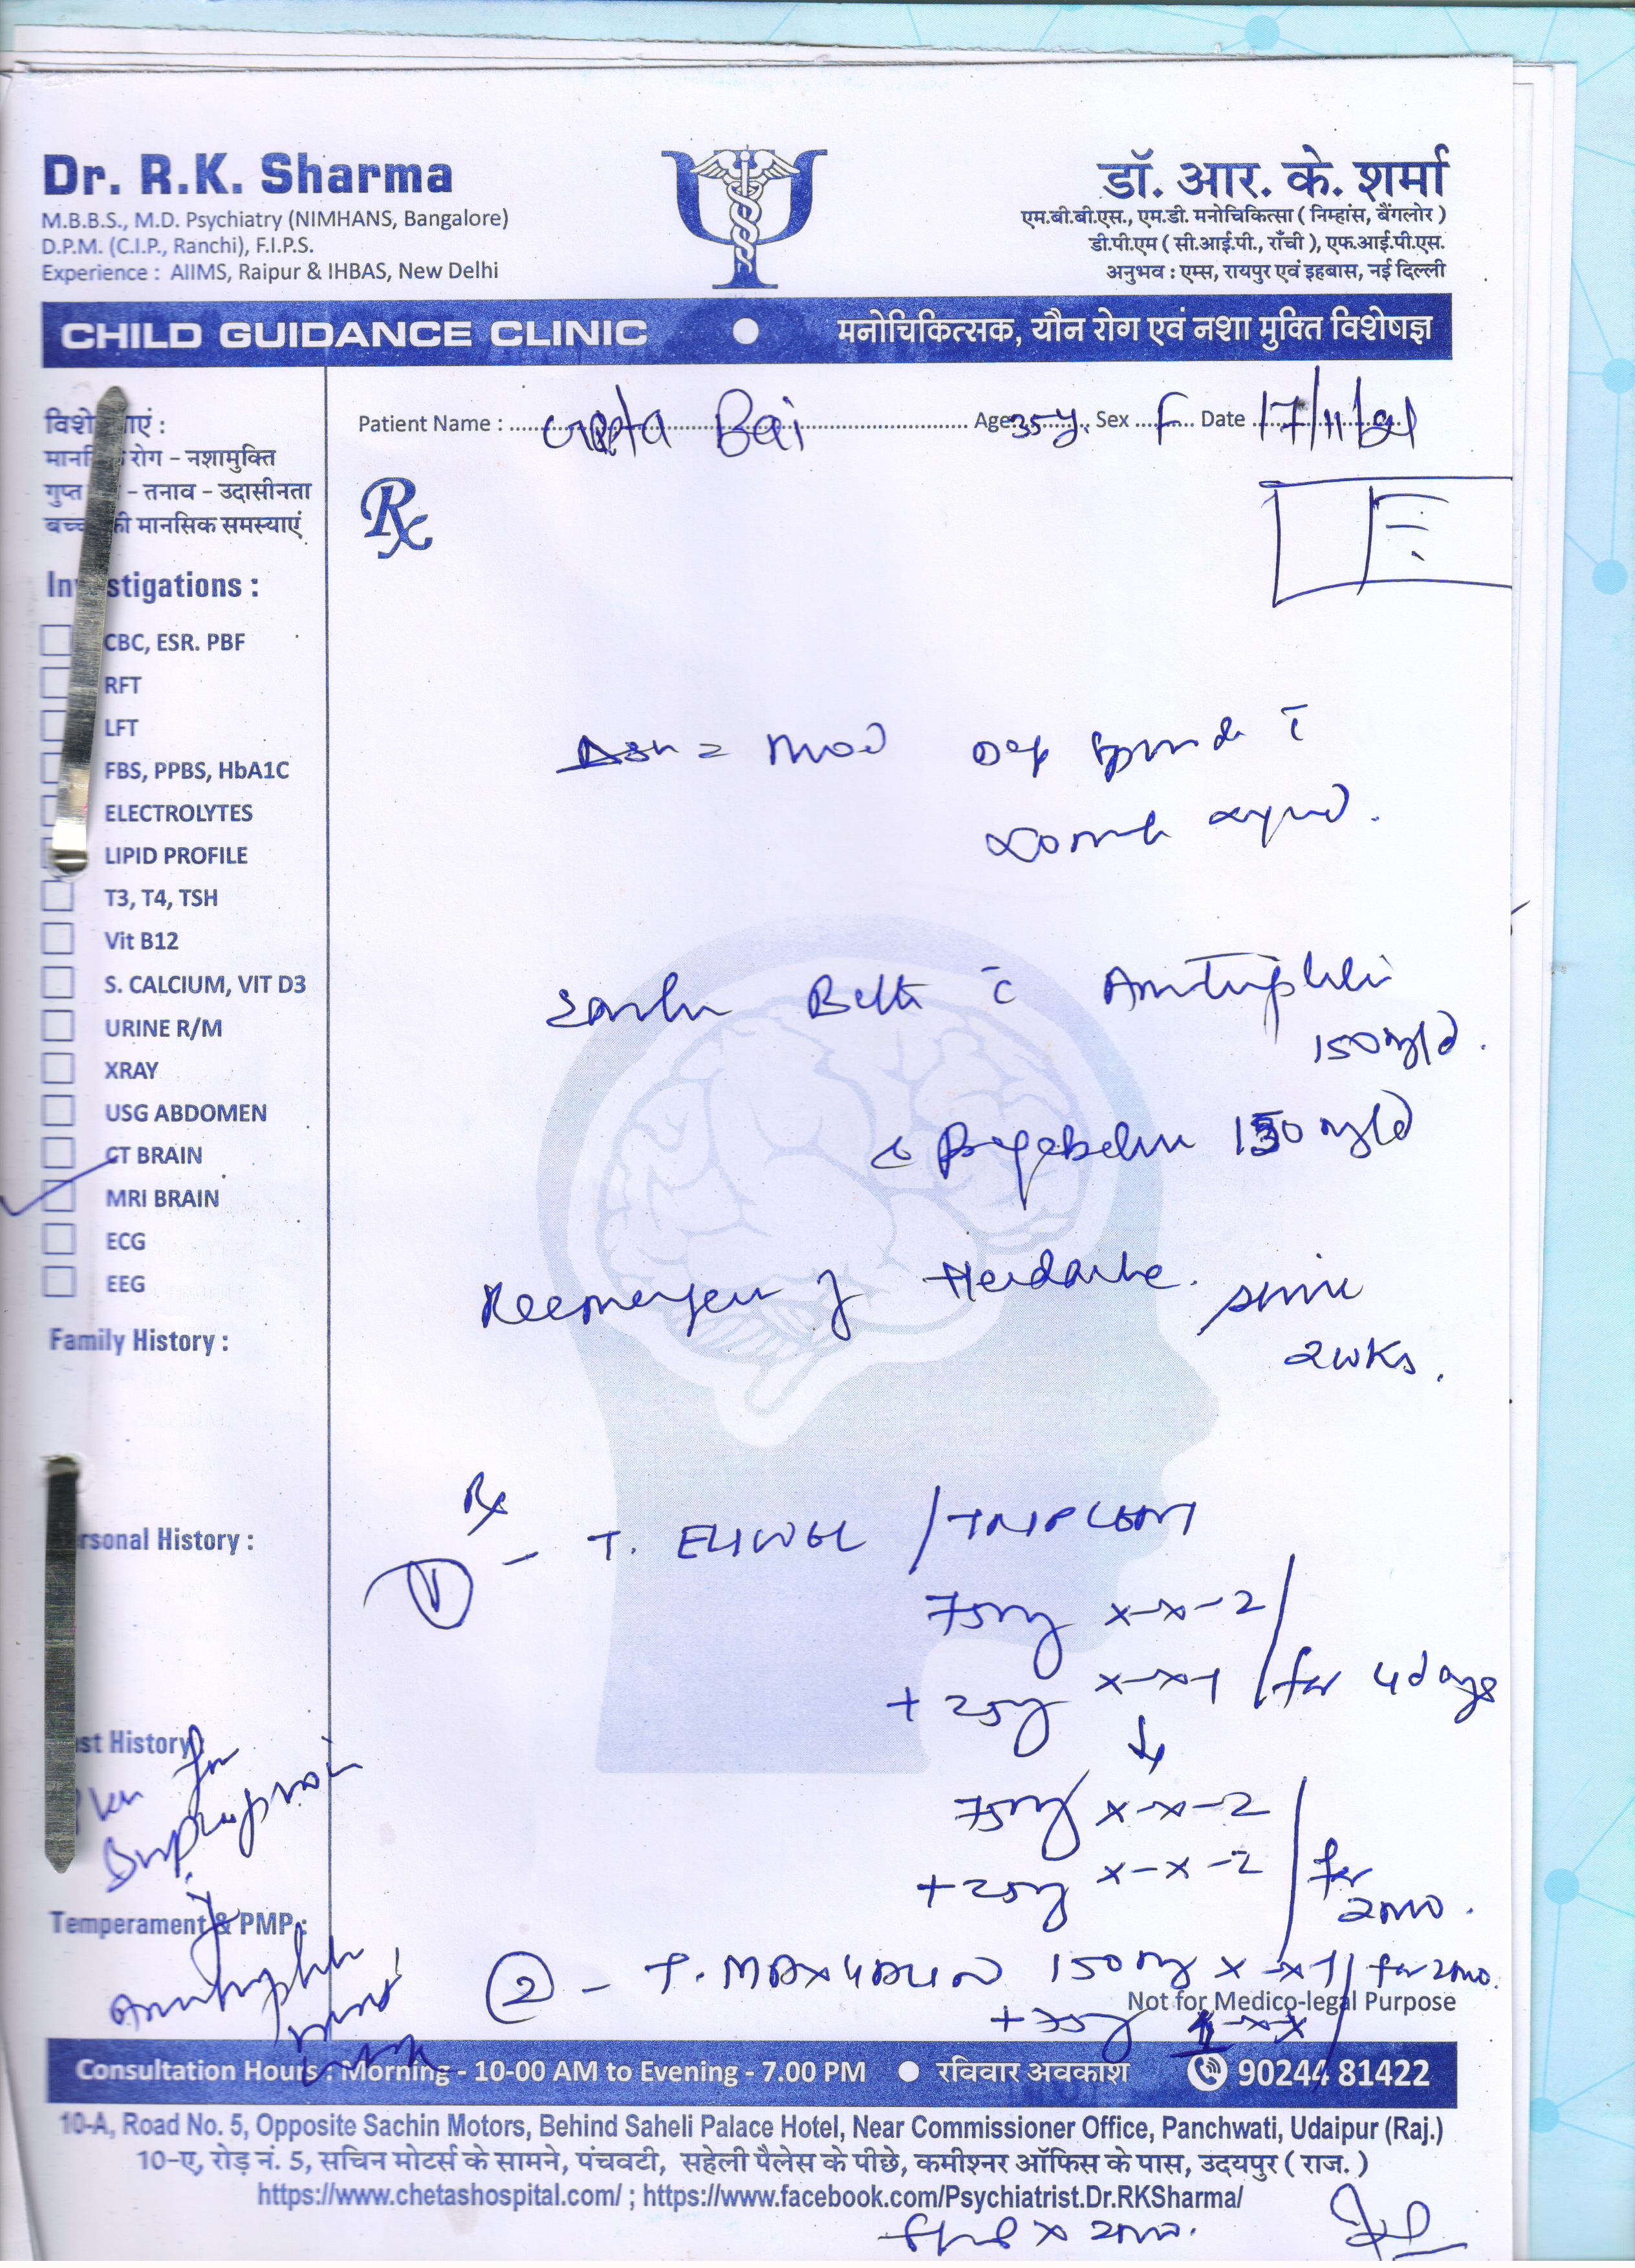 Dr. R.K. Sharma
M.B.B.S., M.D. Psychiatry (NIMHANS, Bangalore)
D.P.M. (C.I.P., Ranchi), F.I.P.S.
Experience : AIIMS, Raipur & IHBAS, New Delhi
डॉ. आर. के. शर्मा
एम.बी.बी.एस., एम.डी. मनोचिकित्सा ( निम्हांस, बैंगलोर )
डी.पी.एम ( सी.आई.पी., राँची ), एफ.आई.पी.एस.
अनुभव : एम्स, रायपुर एवं इहबास, नई दिल्ली
CHILD GUIDANCE CLINIC
मनोचिकित्सक, यौन रोग एवं नशा मुक्ति विशेषज्ञ
Patient Name : Geeta Bai Age 35y. Sex F Date 17/11/21
रोग – नशामुक्ति
गुप्त – तनाव – उदासीनता
की मानसिक समस्याएं
Rx
Investigations :
CBC, ESR. PBF
RFT
LFT
FBS, PPBS, HbA1C
ELECTROLYTES
LIPID PROFILE
T3, T4, TSH
Vit B12
S. CALCIUM, VIT D3
URINE R/M
XRAY
USG ABDOMEN
CT BRAIN
MRI BRAIN
ECG
EEG
Family History :
Personal History :
Past History :
Temperament & PMP :
= mod Dep
Better c̄
150mg/d.
150 mg/d
Headache. since
2wks.
Rx
1 - T. /
75mg x-x-2
+ 25mg x-x-1 for 4 days
↓
75mg x-x-2
+ 25mg x-x-2 for
2mo.
for
2 - T. MAXGALIN 150mg x-x-1 for 2mo.
+ 75mg 1-x-x
Not for Medico-legal Purpose
Consultation Hours : Morning - 10-00 AM to Evening - 7.00 PM ● रविवार अवकाश 90244 81422
10-A, Road No. 5, Opposite Sachin Motors, Behind Saheli Palace Hotel, Near Commissioner Office, Panchwati, Udaipur (Raj.)
10-ए, रोड़ नं. 5, सचिन मोटर्स के सामने, पंचवटी, सहेली पैलेस के पीछे, कमीश्नर ऑफिस के पास, उदयपुर ( राज. )
https://www.chetashospital.com/ ; https://www.facebook.com/Psychiatrist.Dr.RKSharma/
x 2mo.